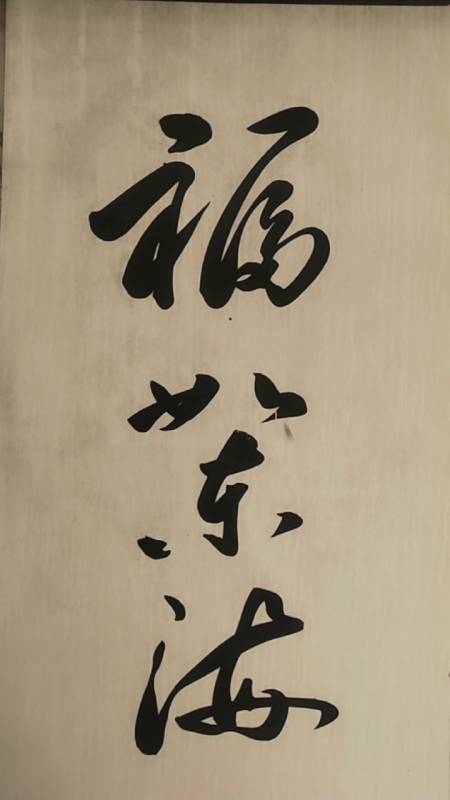 福如东海